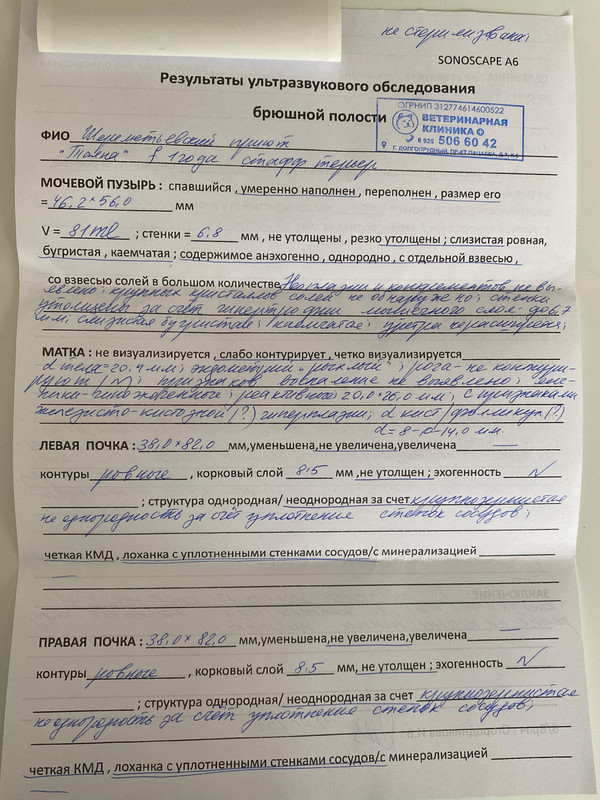 не стерилизована;
SONOSCAPE A6
Результаты ультразвукового обследования
брюшной полости
ОГРНИП 312774614600522
ВЕТЕРИНАРНАЯ
КЛИНИКА
8 925 506 60 42
Г. ДОЛГОПРУДНЫЙ, ПР-КТ ПАЦАЕВА, Д.7, К.4
ФИО Шереметьевский приют
"Тайна" f 1 года стафф терьер
МОЧЕВОЙ ПУЗЫРЬ : спавшийся , умеренно наполнен , переполнен , размер его
= 46,2*56,0 мм
V = 81 ml ; стенки = 6,8 мм , не утолщены , резко утолщены ; слизистая ровная,
бугристая , каемчатая ; содержимое анэхогенно , однородно , с отдельной взвесью ,
со взвесью солей в большом количестве Неоплазии и конкрементов не вы-
явлено; крупных кристаллов солей не обнаружено; стенки
утолщены за счет гипертрофии мышечного слоя до 6,7
мм; слизистая бугристая; каемчатая; уретра не расширена;
МАТКА : не визуализируется , слабо контурирует , четко визуализируется
d тела=20,4 мм; эндометрий "рыхлый"; рога - не контури-
руют (N); признаков воспаления не выявлено;
реактивно 20,0*26,0 мм; с признаками
железисто-кистозной (?) гиперплазии; d кист/фолликул (?)
d=8-14,0 мм
ЛЕВАЯ ПОЧКА : 38,0*82,0 мм,уменьшена,не увеличена,увеличена —
контуры ровные , корковый слой 8,5 мм ,не утолщен ; эхогенность N
; структура однородная/ неоднородная за счет крупнозернистая
неоднородность за счёт уплотнения стенок сосудов;
четкая КМД , лоханка с уплотненными стенками сосудов/с минерализацией
—
ПРАВАЯ ПОЧКА : 38,0*82,0 мм,уменьшена,не увеличена,увеличена —
контуры ровные , корковый слой 8,5 мм, не утолщен ; эхогенность N
; структура однородная/ неоднородная за счет крупнозернистая
неоднородность за счёт уплотнения стенок сосудов;
четкая КМД , лоханка с уплотненными стенками сосудов/с минерализацией